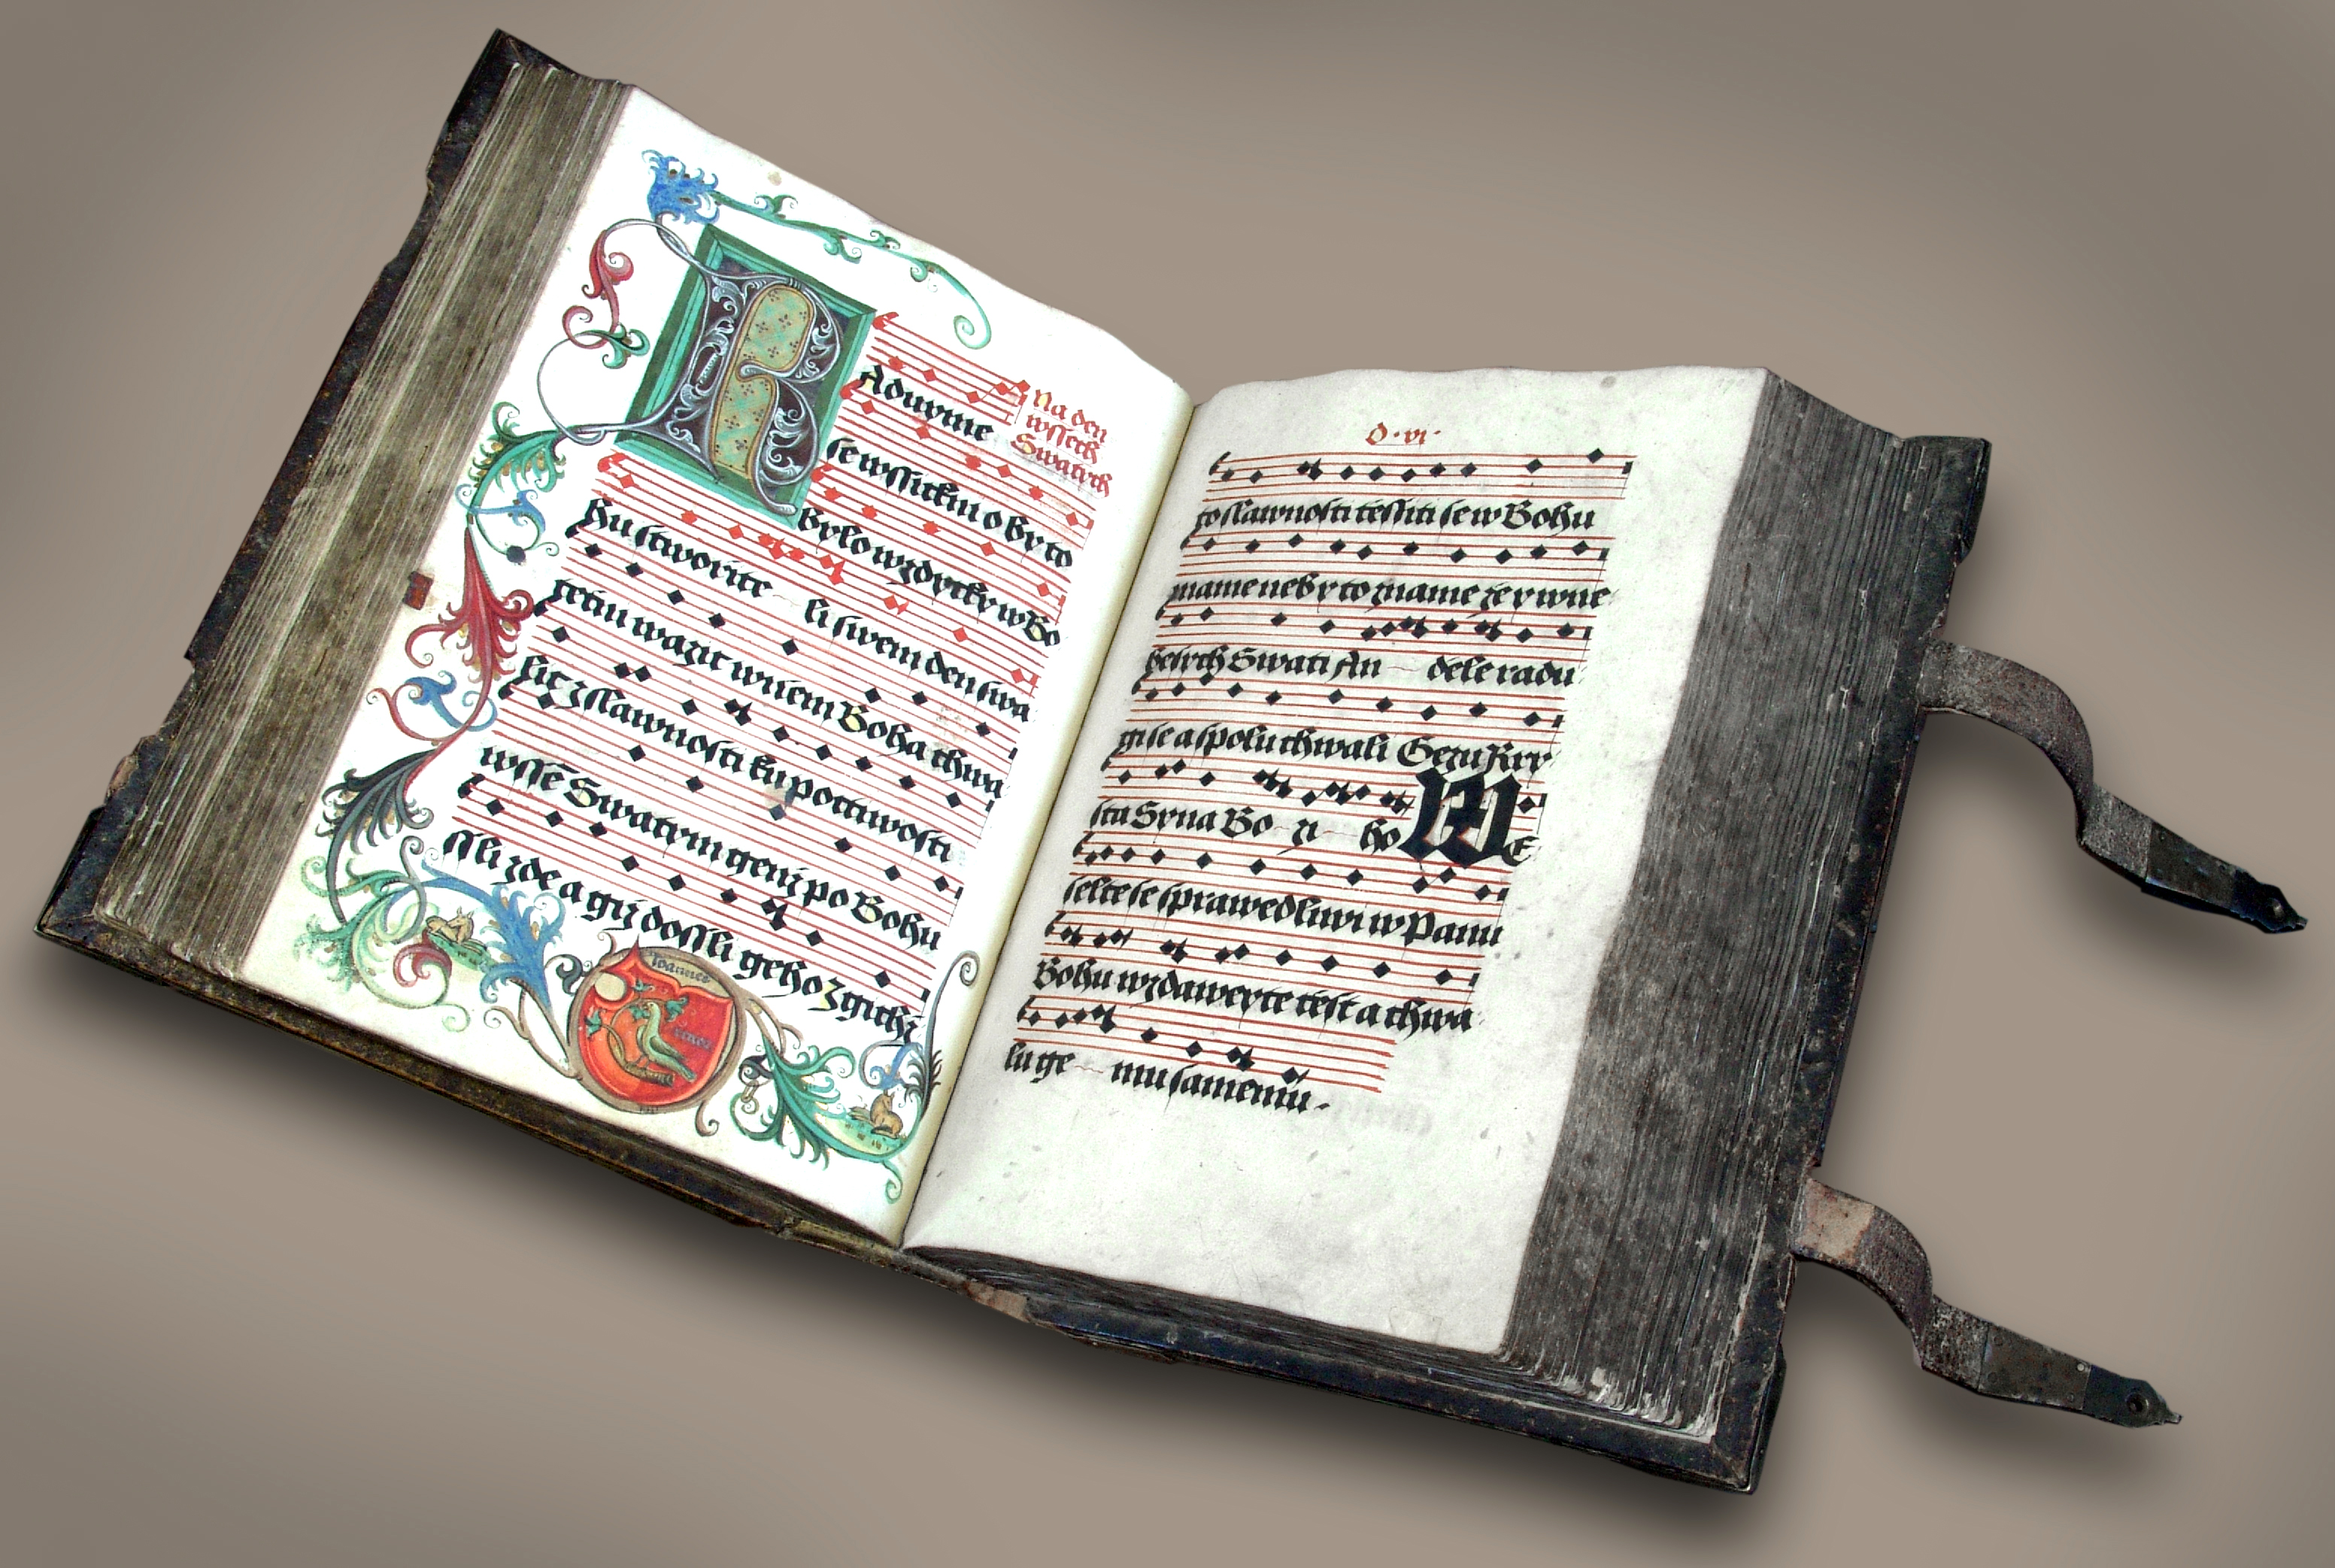 Radugme
Na den
wssech
Swatých
se wssickni o by to
by lo wzdycky w Bo
hu stworite li swem den swa
tecni wazic w niem Boha chwa
lic z slawnosti ku poctiwosti
wsse Swatym geniz po Bohu
ssli zde a gij dossli geho z gichz
Ioannes
O · vi ·
to slawnosti tessiti se w Bohu
mame neb y to zname ze y w ne
besych Swati An dele radu
gi se a spolu chwali Gezu Kry
sta Syna Bo zi ho We
selte se sprawedliwi w Panu
Bohu wzdaweyte cest a chwa
lu ge mu sameniu